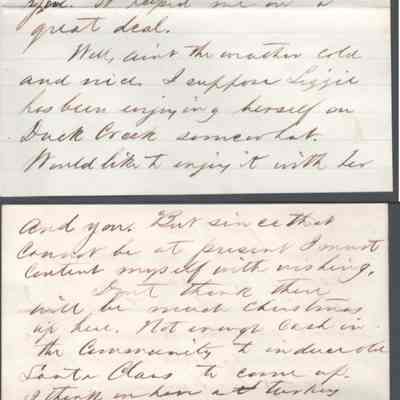 you. It helped me on a
great deal.
Well, aint the weather cold
and nice. I suppose Lizzie
has been enjoying herself on
Duck Creek somewhat.
Would like to enjoy it with her
and you. But since that
cannot be at present I must
content myself with wishing.
Don't think there
will be much Christmas
up here. Not enough Cash in
the Community to induce old
Santa Claus to come up.
I think we have a turkey